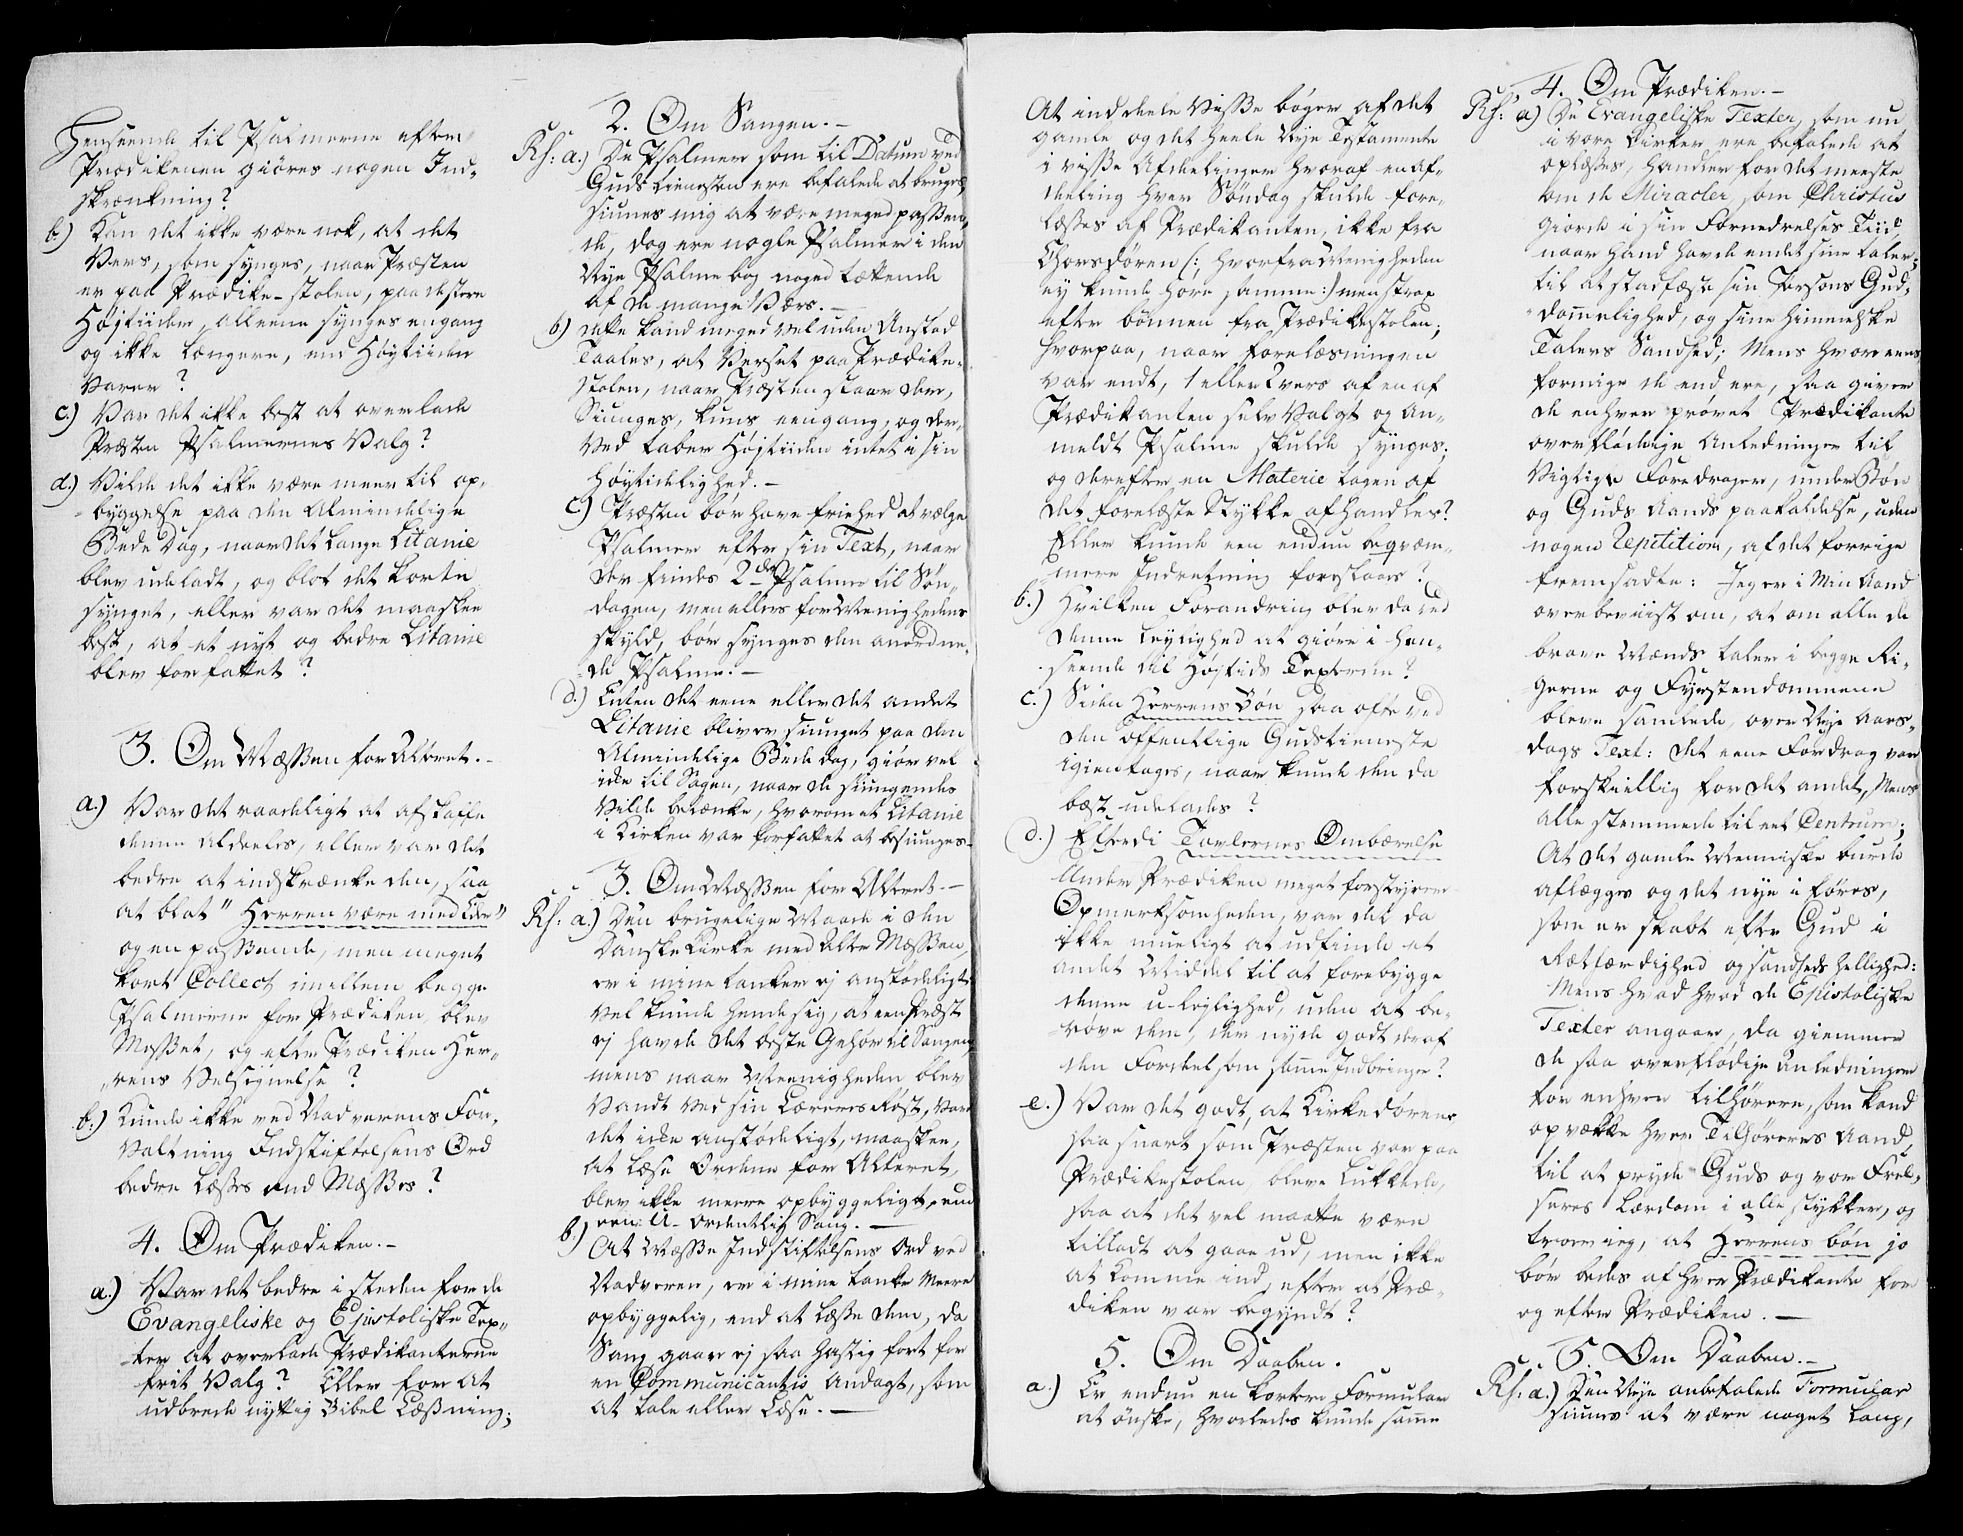 Henseende til Psalmerne efter
Prædikenen giöres nogen Ind-
skrænkning?
b.) Kan det ikke være nok, at det
Vers, som synges, naar Præsten
er paa Prædike-stolen, paa de store
Højtiider, alleene synges engang
og ikke længere, end Höytiiden
varer?
c.) Var det ikke best at overlade
Præsten Psalmernes Valg?
d.) Vilde det ikke være meer til op-
byggelse paa den Almindelige
Bede Dag, naar det lange Litanie
blev udeladt, og blot det korte
synget, eller var det maaskee
best, at et nyt og bedre Litanie
blev forfattet?
3. Om Mæssen for Alteret.-
a.) Var det raadeligt at afskaffe
denne aldeeles, eller var det
bedre at indskrænke den, saa
at blot "Herren være med Eder"
og en passende, men meget
kort Collect imellem begge
Psalmerne for Prædiken, blev
Messet, og efter Prædiken Her-
rens Velsignelse?
b.) Kunde ikke ved Nadverens For-
valtning Indstiftelsens Ord
bedre læses end Mæsses?
4. Om Prædiken.-
a.) Var det bedre i steden for de
Evangeliske og Epistoliske Tex-
ter at overlade Prædikanterne
frit Valg? Eller for at
udbrede nyttig Bibel Læsning;
2. Om Sangen.-
Rs: a.) De Psalmer som til Datum ved
Guds tienesten ere befalede at bruges
siunes mig at være meged passen-
de, dog ere nogle Psalmer i den
Nye Psalmebog noged tækende
af de mange Vers.-
b.) Dette kand meged vel uden Anstød
Taales, at Verset paa Prædike-
stolen, naar Præsten staar der,
Siunges, kuns eengang, og der-
ved taber Højtiiden intet i sin
höytidelighed.-
c.) Præsten bör have friehed at vælge
Psalmer efter sin Text, naar
der findes 2de Psalmer til Søn-
dagen, men ellers for Menighedens
skyld, bör synges den anordne-
de Psalme.-
d.) Enten det eene eller det andet
Litanie bliver siunget paa den
Almindelige Bede dag, giör vel
icke til Sagen, naar de siungendes
vilde betænke, hvorom et Litanie
i Kirken var forfattet at besiunges-
3. Om Mæssen for Alteret.-
Rs: a.) Den brugelige Maade i den
Danske Kirke med Alter Messen,
er i mine tanker ej anstødeligt
vel kunde hende sig, at een Præst
ej havde det beste Gehör til Sangen,
mens naar Meenigheden blev
Vandt ved sin Lærers Röst, var
det icke anstødeligt, maaskee,
at læse Ordene for Alteret,
blev ikke meere opbyggeligt, end
een U-ordentlig Sang.-
b.) At Mæsse Indstiftelsens Ord ved
Nadveren, er i mine tanke Meere
opbyggelig, end at læse dem, da
Sang gaaer ej saa hastig fort for
en Communicantis Andagt, som
at tale eller læse.-
At inddeele Visse böger af det
gamle og det heele Nye Testamente
i visse Afdeelinger hvoraf en af-
deeling hver Söndag skulde fore-
læses af Prædikanten, ikke fra
Chorsdören (: hvorfra Menigheden
ej kunde höre samme:) men strax
efter bönnen fra Prædikestolen;
hvorpaa, naar forelæsningen
var endt, 1 eller 2 vers af en af
Prædikanten selv valgt og an-
meldt Psalme skulde synges,
og derefter en Materie tagen af
det forelæste Stykke afhandles?
Eller kunde een endnu beqvem-
mere Indretning foreslaaes?
b.) Hvilken Forandring blev da ved
denne leylighed at giöre i hen-
seende til Højtids Texterne?
c.) Siden Herrens Bön saa ofte ved
den offentlige Gudstieneste
igientages, naar kunde den da
best udelades?
d.) Efterdi Tavlernes Ombærelse
under Prædiken meget forstyrrer
Opmerksomheden, var det da
ikke mueligt at udfinde et
andet Middel til at forebygge
denne u-lejlighed, uden at be-
röve dem, der nyde godt deraf
den Fordel som samme Indbringer?
e.) Var det godt, at Kirkedörene
saa snart som Præsten var paa
Prædikestolen, bleve lukkede,
saa at det vel maatte være
tilladt at gaae ud, men ikke
at komme ind, efter at Præ-
diken var begyndt?
5. Om Daaben.
a.) Er endnu en kortere Formular
at önske, hvorledes kunde samme
4. Om Prædiken.-
Rs: a.) De Evangeliske Texter, som nu
i vore Kirker ere befalede at
oplæses, handler for det meeste
om de Miracler, som Christus
giorde i sin Fornedrelses Tiid,
naar hand havde endet sine taler,
til at stadfæste sin Persons Gud-
dommelighed, og sine himmelske
Talers Sandhed; Mens hvor eens
formige de end ere, saa giver
de enhver prövet Prædikante
overflödige Anledninger til
Vigtige Foredrager, under Bön
og Guds Aands paakaldelse, uden
nogen Repitition, af det forrige
fremsadte: Jeg er i Min Aand
overbeviist om, at om alle de
brave Mænds taler i begge Ri-
gerne og Fyrstendommene
bleve samlede over Nye Aars-
dags Text: det eene Fordrag var
forskiellig for det andet, Mens
alle stemmede til eet Centrum;
At det gamle Menniske burde
aflægges og det nye iföres,
som er skabt efter Gud i
Retfærdighed og sandheds hellighed:
Mens hvad hvad de Epistoliske
Texter angaar, da giemmer
de saa overflödige Anledninger
for enhver tilhörere, som kand
opvække hver Tilhöreres Aand,
til at pryde Guds og vor Frel-
seres Lærdom i alle stykker, og
troer ieg, at Herrens bön jo
bör bedes af hver Prædikante for
og efter Prædiken.-
5. Om Daaben.-
Rs: a.) Den Nye anbefalede Formular
siunes at være noget lang,